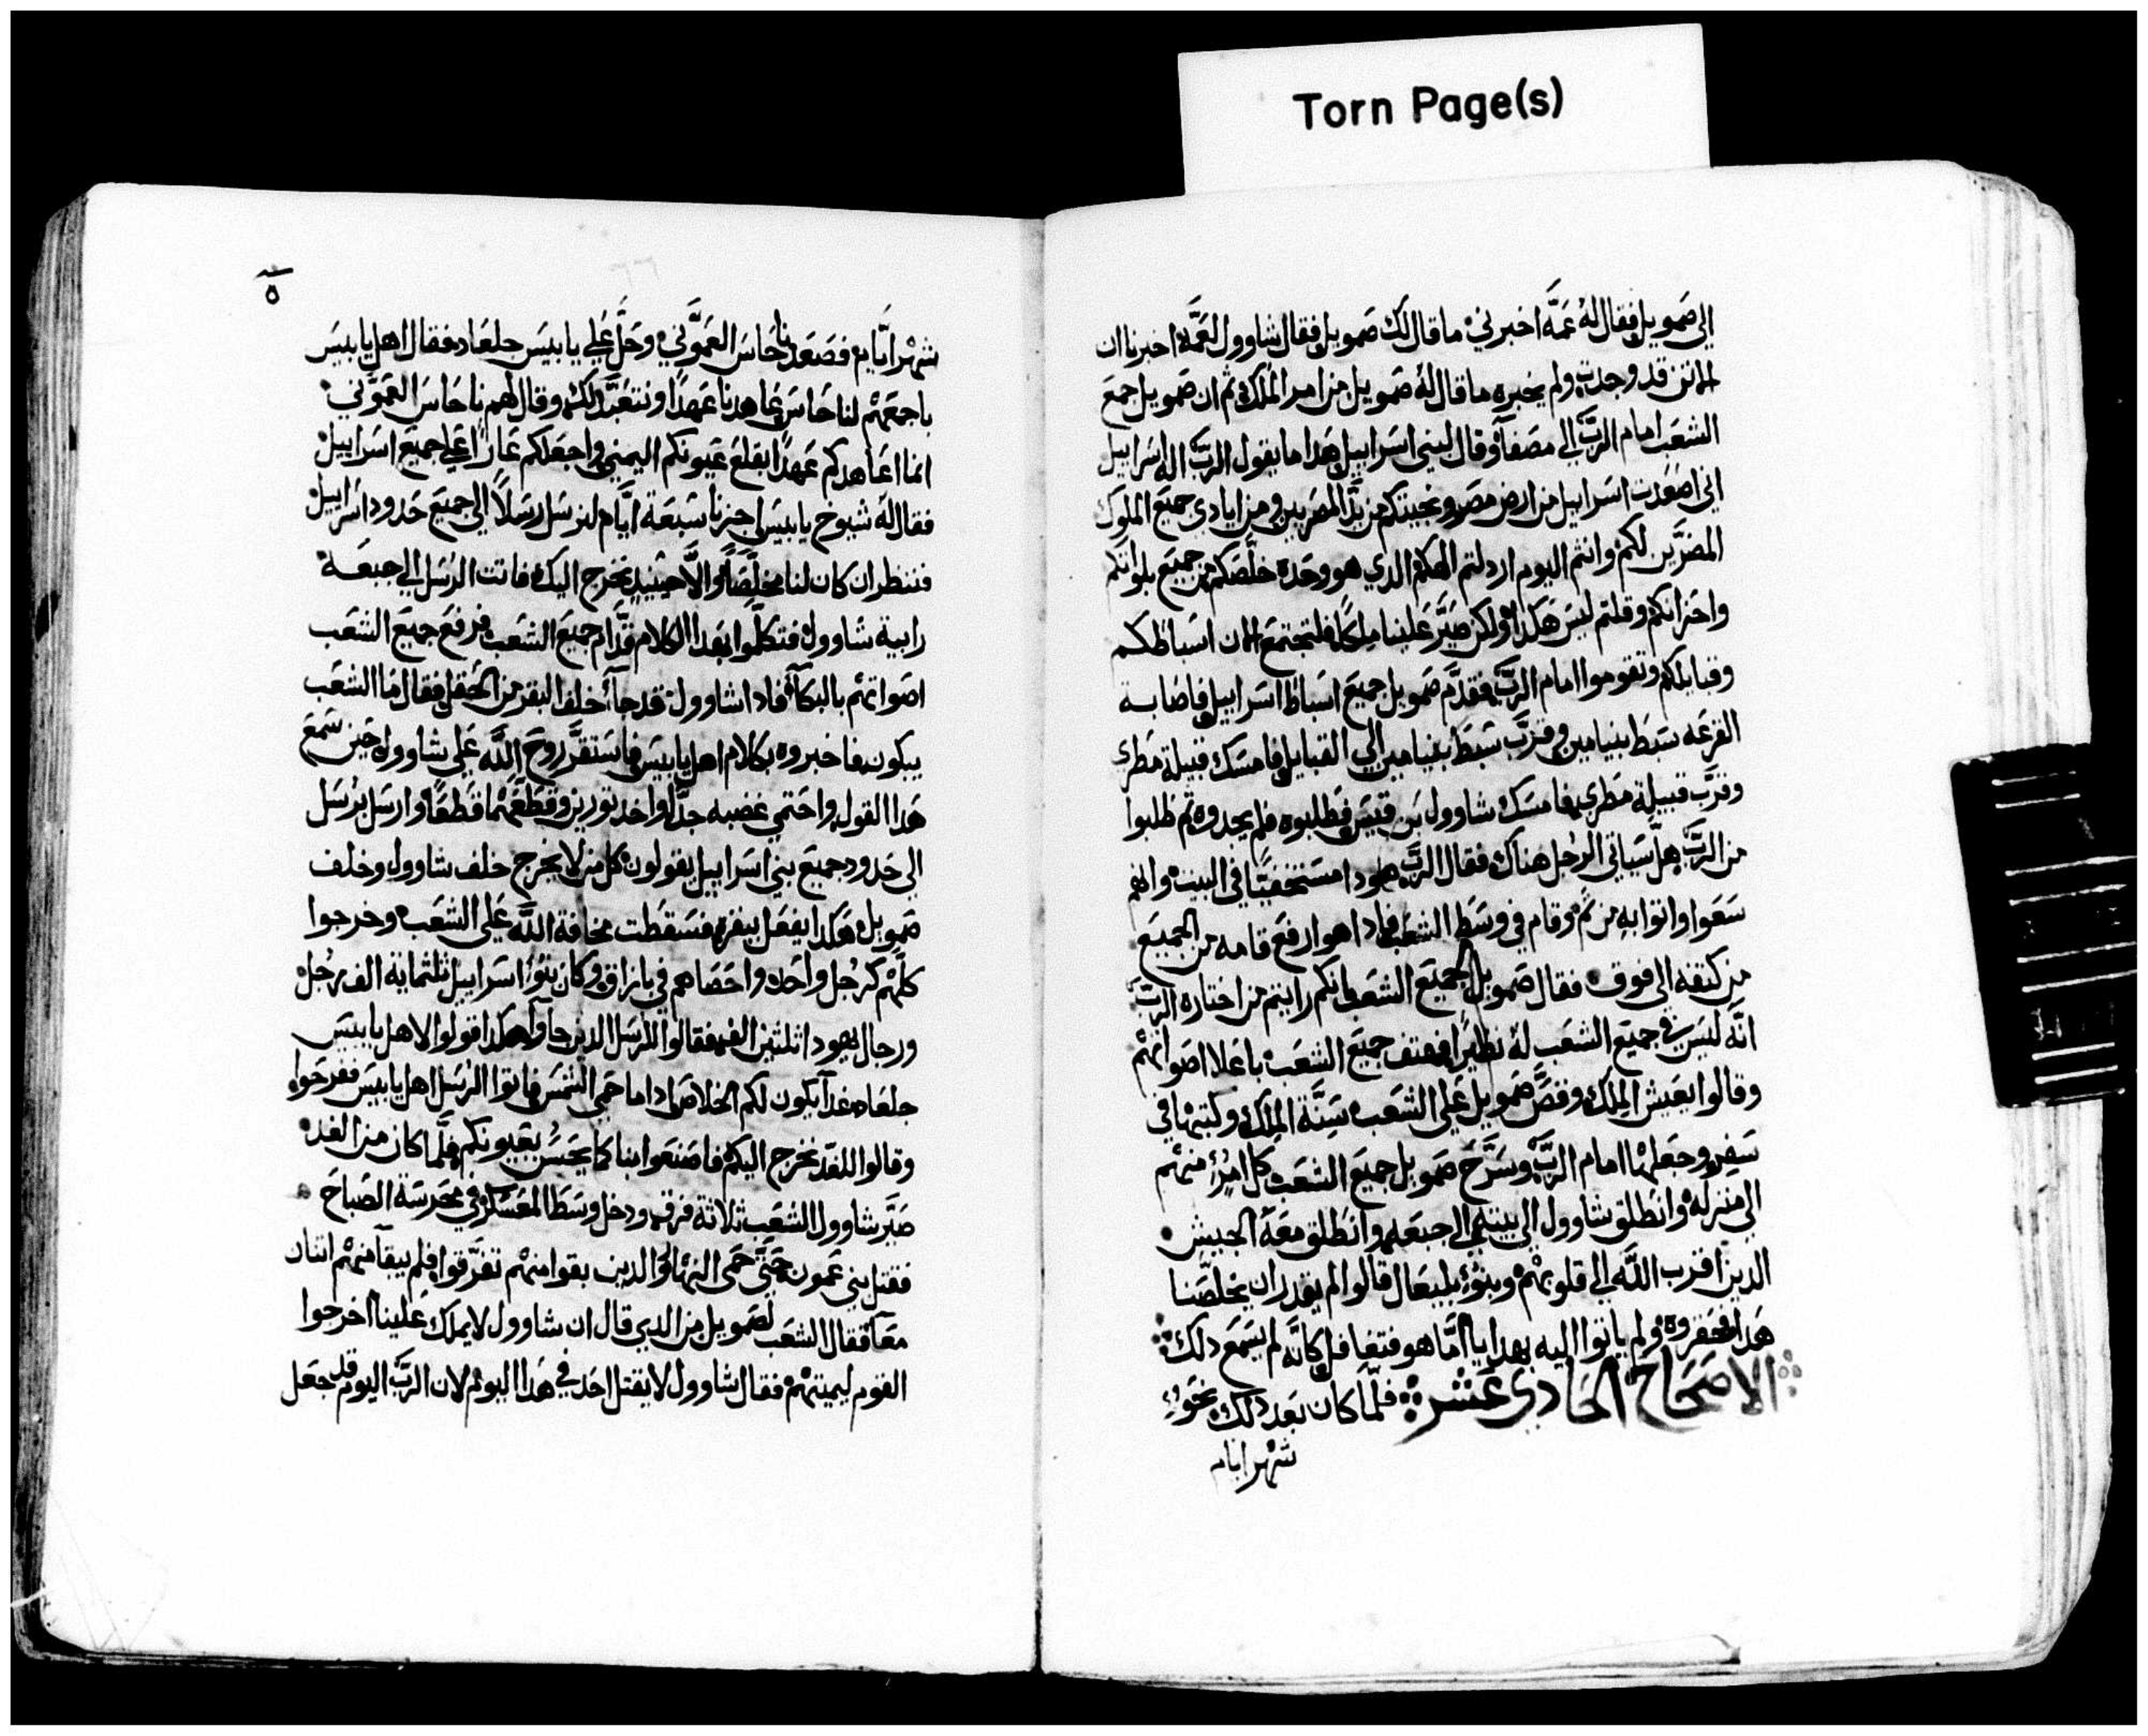 Torn Page(s)
الى صمويل فقال له عمه اخبرني ما قال لك صمويل فقال شاوول لعمه اخبرنا ان
الاتن قد وجدت ولم يخبره ما قال له صمويل من امر الملك ثم ان صمويل جمع
الشعب امام الرب الى مصفا وقال لبني اسراييل هدا ما يقول الرب اله اسراييل
اني اصعدت اسراييل من ارض مصر ونجيتكم من يد المصريين ومن ايادي جميع الملوك
المضرين لكم وانتم اليوم اردلتم الهكم الدي هو وحده خلصكم من جميع بلواتكم
واحزانكم وقلتم ليس هكدا ولكن صير علينا ملكا فلتجتمع الان اسباطكم
وقبايلكم وتقوموا امام الرب فقدم صمويل جميع اسباط اسراييل فاصابة
القرعه سبط بنيامين وقرب سبط بنيامين الى القبايل فامسك قبيلة مطري
وقرب قبيلة مطري فامسك شاوول بن قيس فطلبوه فلم يجدوه ثم طلبوا
من الرب هل سياتي الرجل هناك فقال الرب هودا مستخفيا في البيت وانهم
سعوا واتوا به من ثم وقام في وسط الشعب فادا هو ارفع قامه من الجميع
من كتفه الى فوق فقال صمويل لجميع الشعب انكم رايتم من احتاره الرب
انه ليس في جميع الشعب له نظيرا فهتف جميع الشعب باعلا اصواتهم
وقالوا يعيش الملك وقص صمويل على الشعب سنة الملك وكتبها في
سفر وجعلها امام الرب وسرح صمويل جميع الشعب كل امرئ منهم
الى منزله وانطلق شاوول الى بيته الى جبعه وانطلق معه الجيش
الدين اقرب الله الى قلوبهم وبنوء بليعال قالوا لم يقدر ان يخلصنا
هدا فحقروه ولم ياتوا اليه بهدايا اما هو فتغافل كانه لم يسمع دلك
الاصحاح الحادي عشر فلما كان بعد دلك نحو
شهر ايام
٥
شهر ايام فصعد ناحاس العموني وحل على يابيس جلعاد فقال اهل يابيس
باجمعهم لناحاس عاهدنا عهدا ونتعبد لك وقال لهم ناحاس العموني
انما اعاهدكم عهدا بقلع عيونكم اليمنى واجعلكم عارا على جميع اسراييل
فقال له شيوخ يابيس اجزنا سبعة ايام لنرسل رسلا الى جميع حدود اسراييل
فننظر ان كان لنا مخلصا والا حينيد نخرج اليك فاتت الرسل الى جبعة
رابية شاوول فتكلموا بهدا الكلام قدام جميع الشعب فرفع جميع الشعب
اصواتهم بالبكاء فادا شاوول قد جآء خلف البقر من الحقل فقال ما الشعب
يبكون فاخبروه بكلام اهل يابيس فاستقر روح الله على شاوول حين سمع
هدا القول واحتمى غضبه جدا واخد ثورين وقطعهما قطعا وارسل برسل
الى حدود جميع بني اسراييل يقولون كل من لا يخرج خلف شاوول وخلف
صمويل هكدا يفعل ببقره فسقطت مخافة الله على الشعب وخرجوا
كلهم كرجل واحد واحصاهم في بازاق وكان بنوا اسراييل ثلثماية الف رجل
ورجال يهودا ثلثين الف فقالوا للرسل الدين جاوا هكدا قولوا لاهل يابيس
جلعاد غدا يكون لكم الخلاص ادا ما حمى الشمس فاتوا الرسل اهل يابيس ففرحوا
وقالوا للغد نخرج اليكم فاصنعوا بنا كما يحسن بعيونكم فلما كان من الغد
صير شاوول الشعب ثلاثة فرق ودخل وسط المعسكر في محرسة الصباح
فقتل بني عمون حتى حمى النهار والدين بقوا منهم تفرقوا فلم يبقا منهم اثنان
معا فقال الشعب لصمويل من الدي قال ان شاوول لا يملك علينا اخرجوا
القوم ليميتهم فقال شاوول لا يقتل احد في هدا اليوم لان الرب اليوم قد جعل